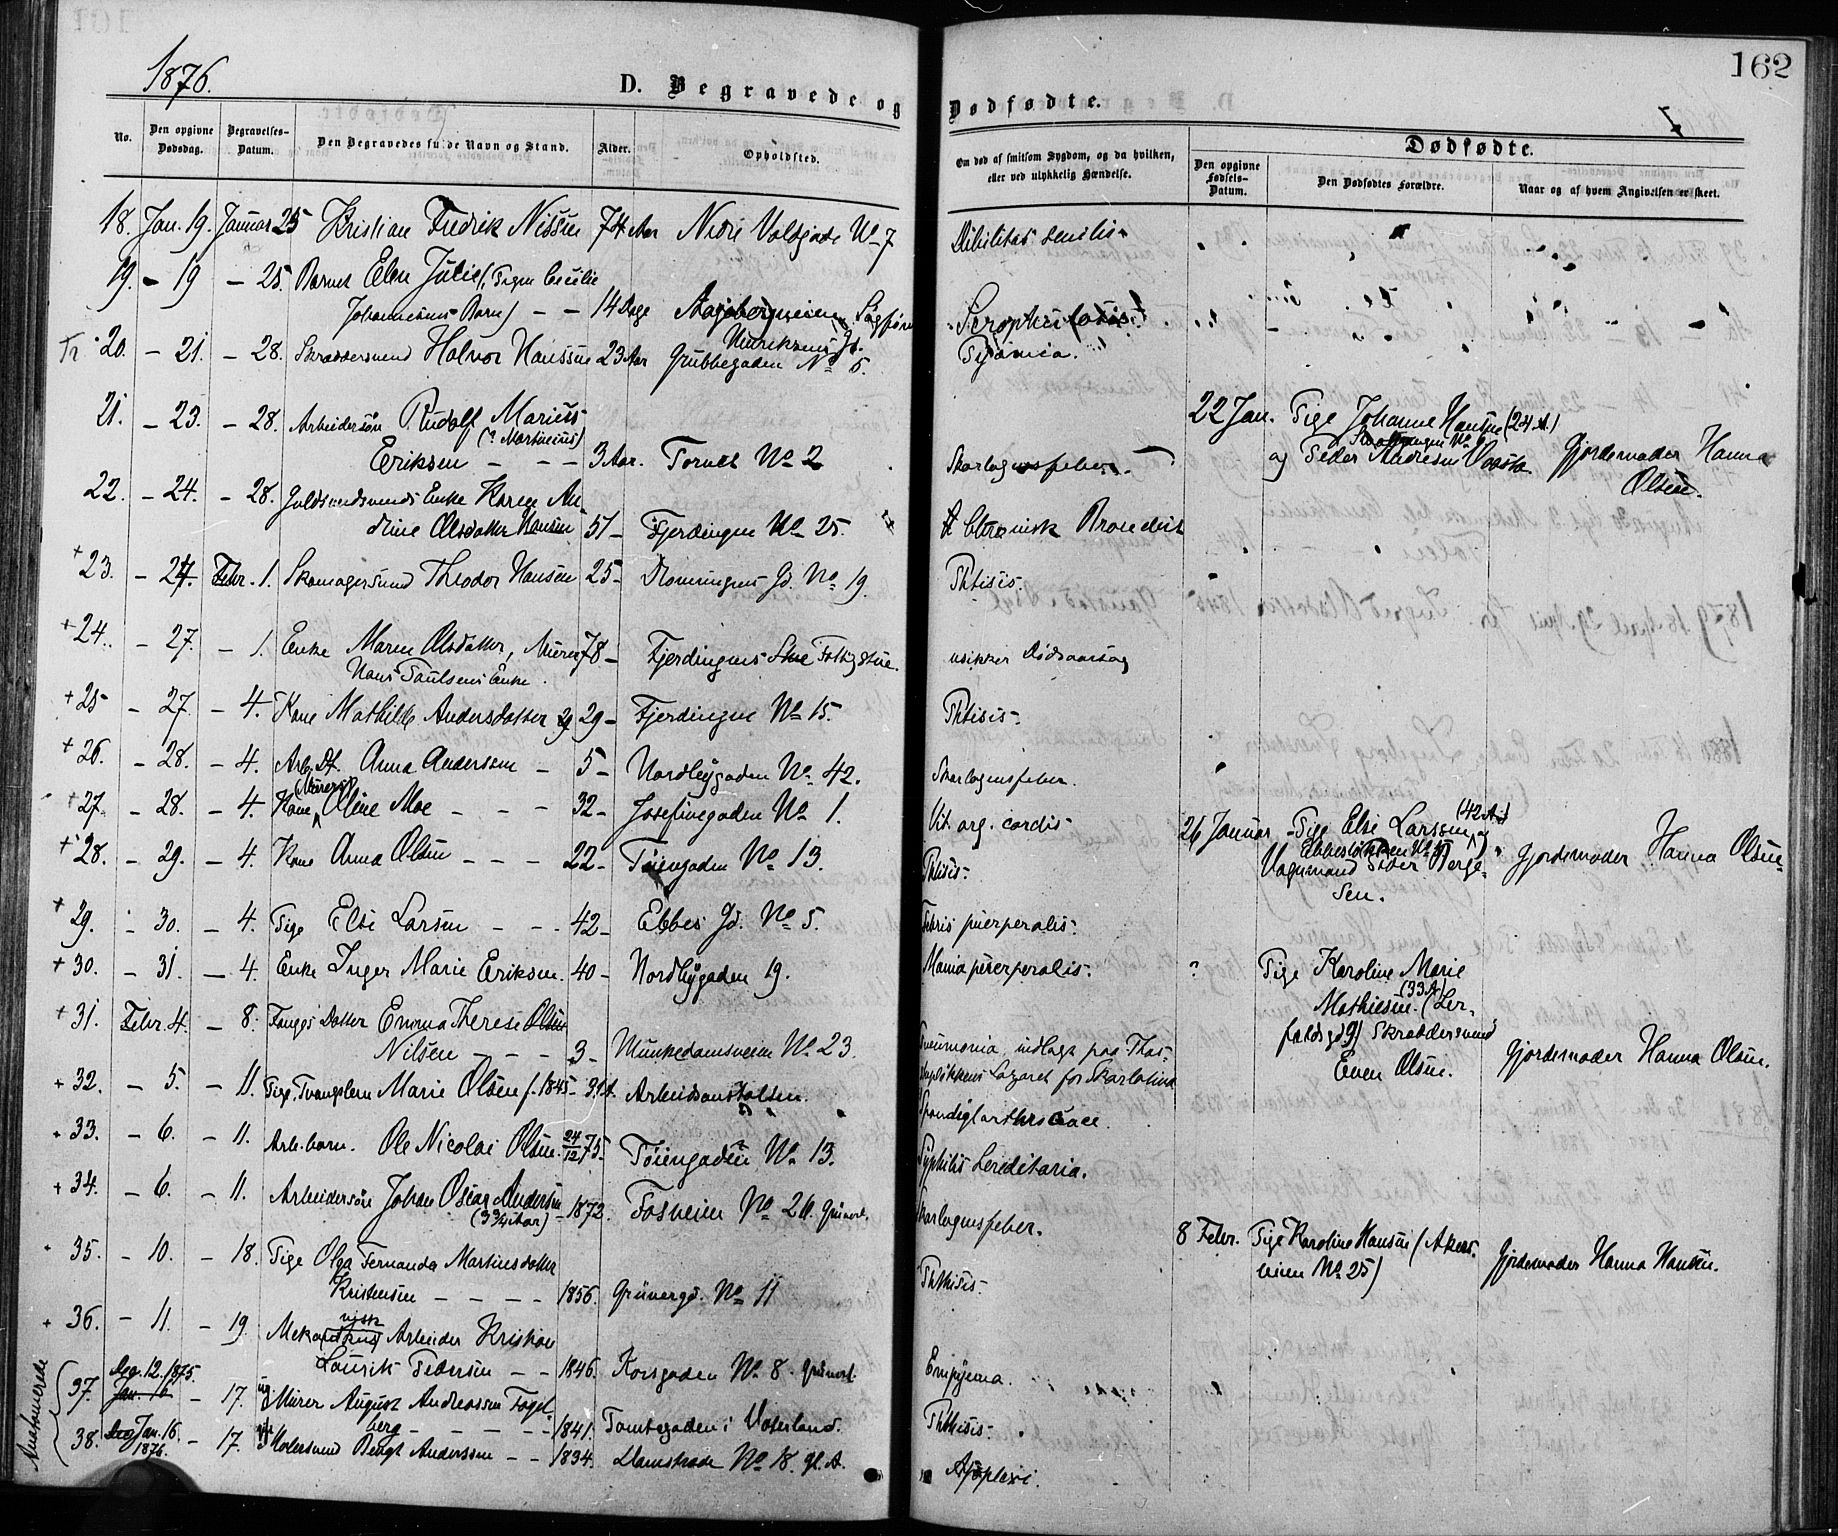 162
1876.
D. Begravede og Dødfødte.
No. Den opgivne Dødsdag. Begravelses-Datum. Den Begravedes fulde Navn og Stand. Alder. Opholdsted. Om død af smitsom Sygdom, og da hvilken, eller ved ulykkelig Hændelse. Dødfødte.
Den opgivne Fødsels-Datum. Den Dødfødtes Forældre. Naar og af hvem Angivelsen er skeet.
18. Jan. 19. Januar 25 Kristian Fredrik Nissen 74 Aar Nedre Voldgade No 7 Debilitas senilis
19. - 19 - 25. Barnet Elen Julie (Pigen Cecilie
Johannesens Barn) - - 14 Dage Aagebergveien,
20. - 21. - 28. Skræddersvend Halvor Hanssen 23 Aar Grubbegaden No 5. Pyæmica.
21. - 23. - 28. Arbeidersøn Rudolf Marius
(? Martinius)
Eriksen - - - 3 Aar. Tornet No 2 Skarlagensfeber.
22 Jan. Pige Johanne Hansen (24 A.)
og Peder Andresen Gjordemoder Hanna
Olsen.
22. - 24. - 28. Guldsmedsvends Enke Karen An-
drine Olsdatter Hansen 51 - Fjerdingen No 25. Chronisk Bronchit
+ 23. - 24. Febr. 1. Skomagersvend Theodor Hansen 25 - No 19. Phtisis.
+ 24. - 27. - 1. Enke Maren Olsdatter, Murer 78 - Fjerdingens Stue usikker Dødsaarsag
Hans Paulsens Enke.
+ 25 - 27. - 4. Kone Mathilde Andersdatter 29 - Fjerdingen No 15. Phtisis.
+ 26. - 28. - 4. Arb. Dt. Anna Andersen - 5 - Nordbygaden No 42. Skarlagensfeber.
+ 27. - 28. - 4. Kone (Murers) Oline Moe - - - 32 - Josefinegaden No 1. Vit. org. cordis
26 Januar - Pige Else Larsen (42 A.) og
Vognmand Peder Berge-
sen. Gjordemoder Hanna Olsen
+ 28. - 29. - 4. Kone Anna Olsen - - - 22 - Tøiengaden No 13. Phtisis.
+ 29. - 30. - 4. Pige Else Larsen - - - 42 - Ebbes Gd. No 5. Febris puerperalis.
+ 30. - 31. - 4. Enke Inger Marie Eriksen. 40 - Nordbygaden 19. Mania puerperalis.
? Pige Karoline Marie
Mathiesen (33 A)
Skræddersvend
Even Olsen. Gjordemoder Hanna Olsen.
+ 31. Febr. 4. - 8. Fanges Datter Emma Therese Olsen
Nilsen - - - 3 - Munkedamsveien No 23. Pneumonia, indlagt paa
Lazaret for Skarlatina
+ 32. - 5. - 11. Pige, Tvangslem Marie Olsen f. 1845 - Arbeidsanstalten.
+ 33. - 6. - 11. Arb. barn. Ole Nicolai Olsen. 24/12 75. Tøiengaden No 13. Syphilis hereditaria.
+ 34. - 6. - 11. Arbeidersøn Johan Oscar Andersen
(3 3/4 Aar) - 1872. Fosveien No 20. Grünerl. Skarlagensfeber.
+ 35. - 10. - 18. Pige Olga Fernanda Martinsdatter
Kristensen - - - - 1856. Grünergd. No 11 Phthisis.
8 Febr. Pige Karoline Hansen (Akers-
veien No 25) Gjordemoder Hanna Hansen.
+ 36. - 11. - 19. Mekanisk Arbeider Kristian
Laurits Pedersen - - 1846. Korsgaden No 8. Grünerl. Empyema.
Anatomerede
37. Deg. 12. 1875. Jan. 16 - 17. Murer August Andreassen Fagel-
berg - - - - 1841. Tomtegaden i Vaterland. Phthisis.
38. Jan. 16. 1876. - 17. Malersvend Bengt Anderssen - - 1834. Damstræde No 18. gl. A. Apoplexi.